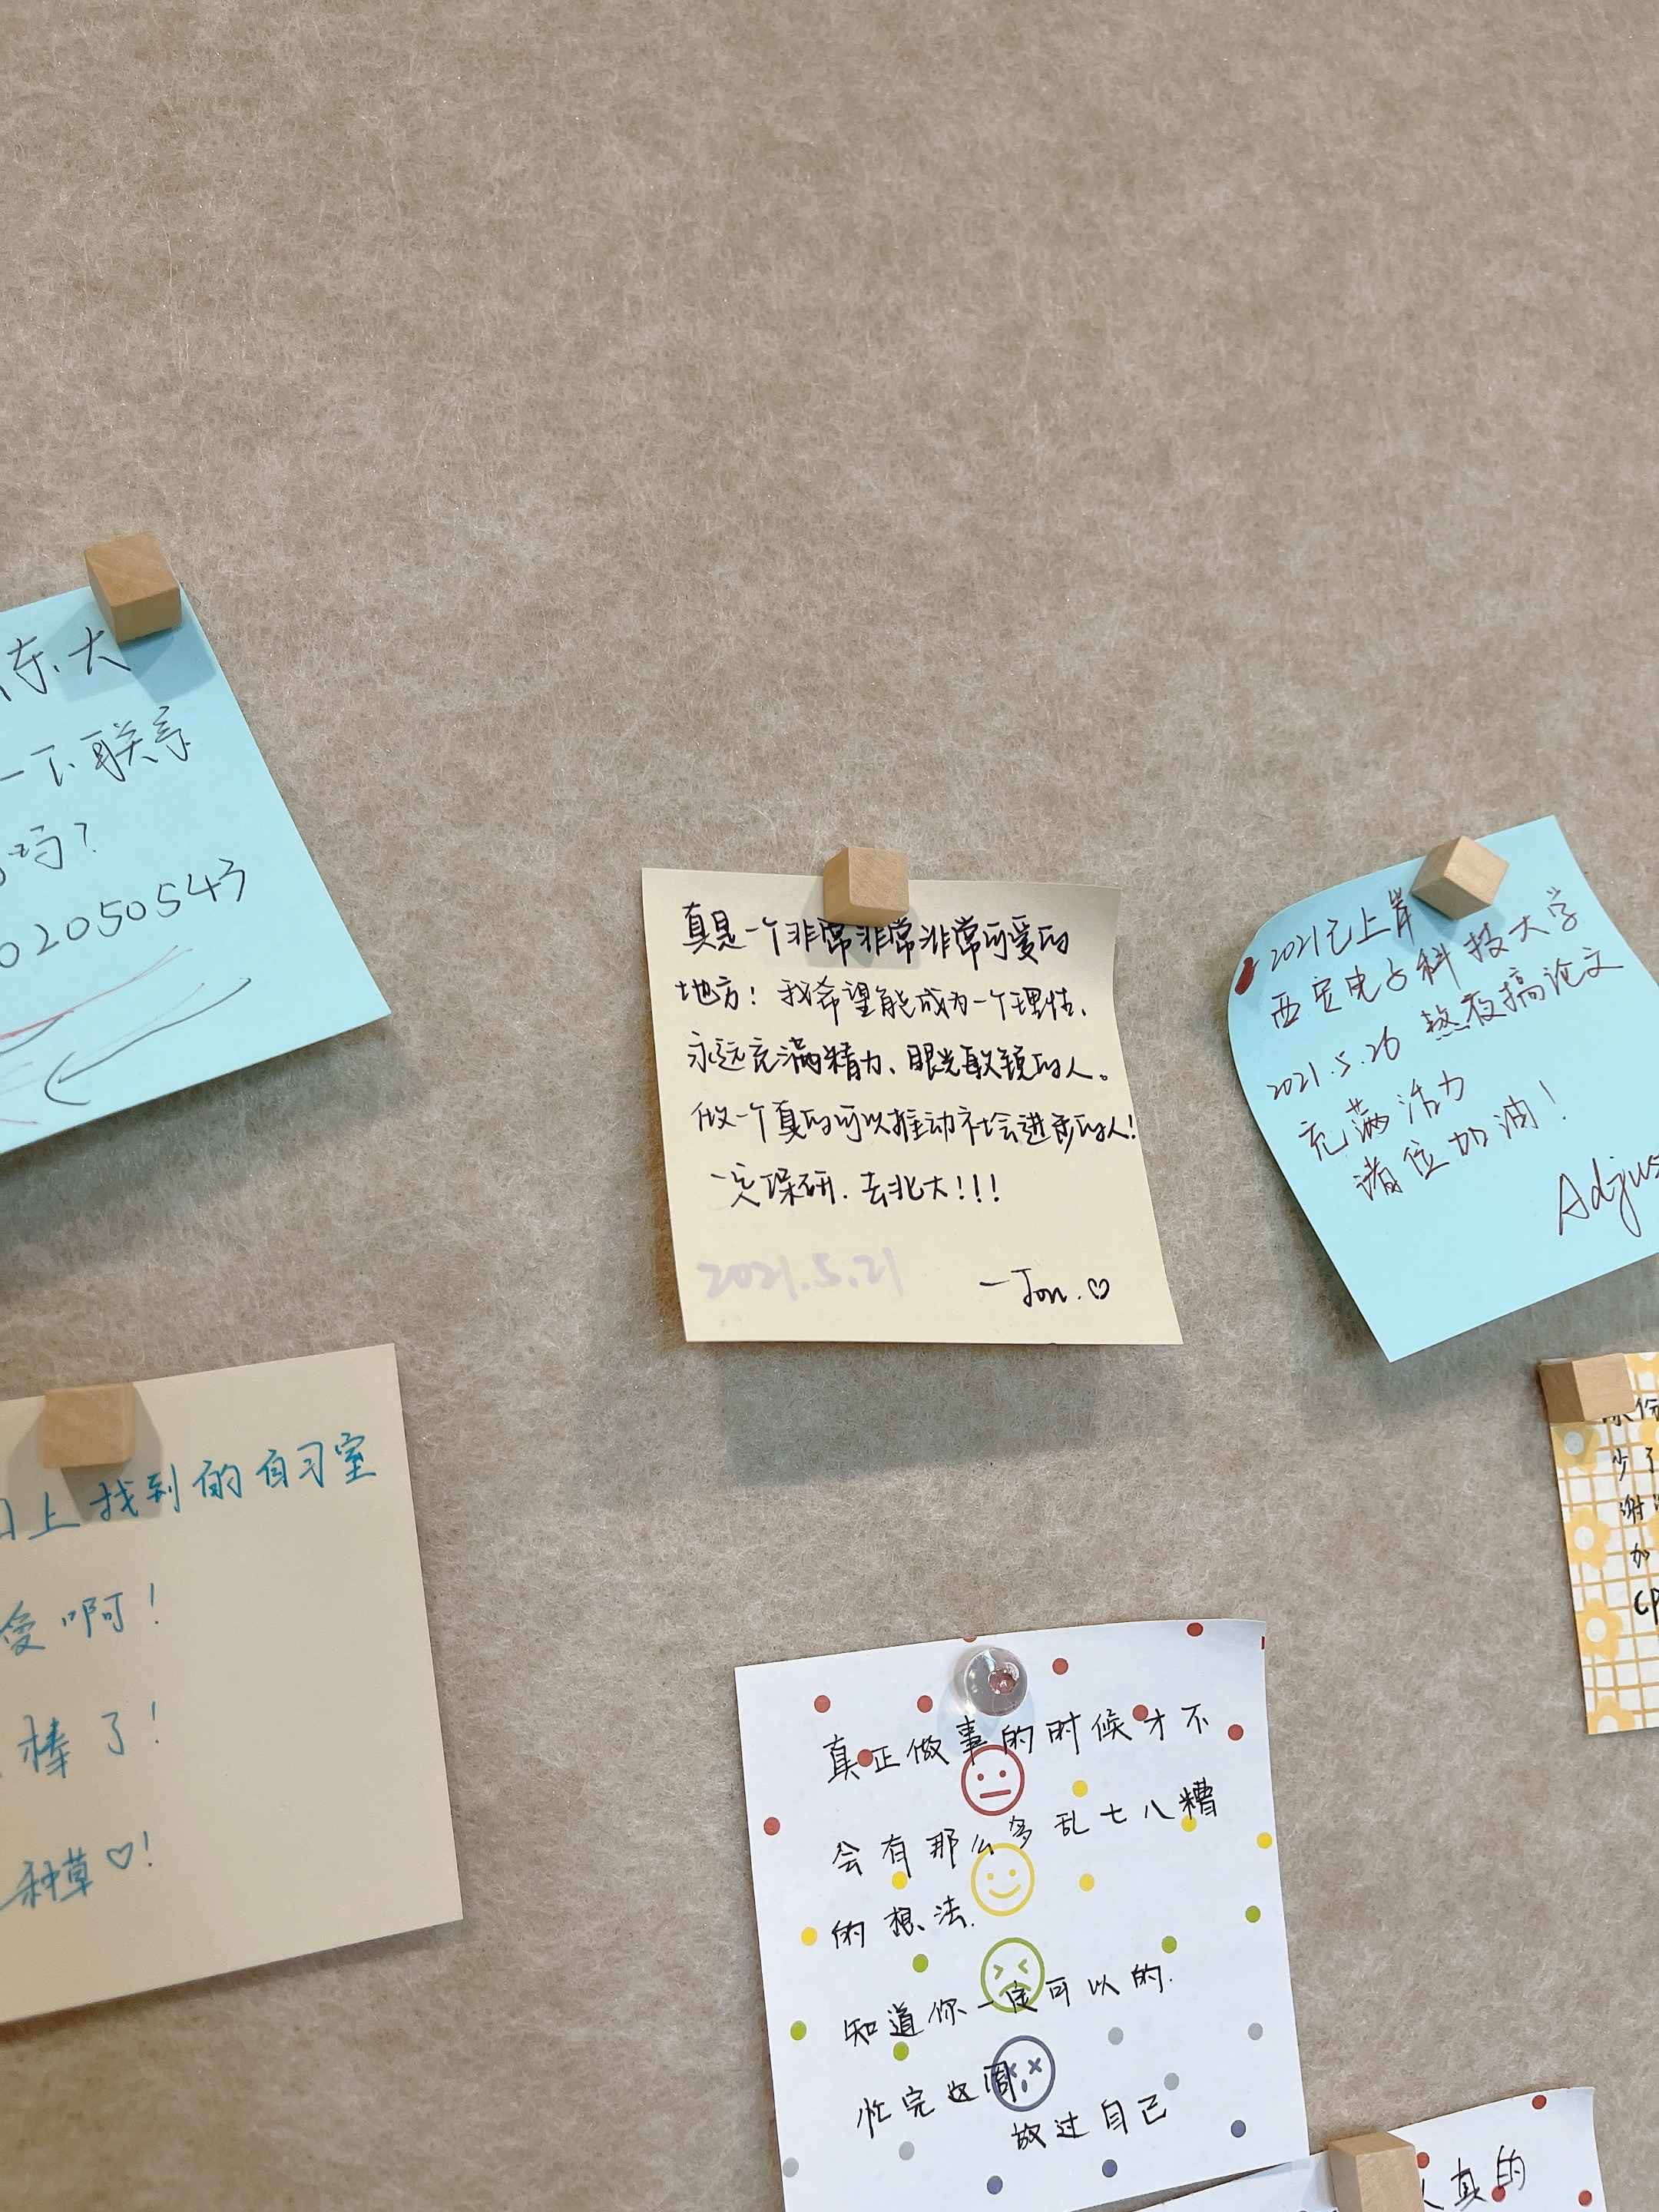 东大
一下联系
吗?
02050543
真是一个非常非常非常可爱的
地方！我希望能成为一个理性、
永远充满精力、眼光敏锐的人。
做一个真的可以推动社会进步的人!
一定保研.去北大!!!
2021.5.21
—Jon.♡
2021已上岸
西安电子科技大学
2021.5.26 熬夜搞论文
充满活力
诸位加油!
上找到的自习室
爱啊!
棒了!
种草♡!
少了
谢
加
CP
真正做事的时候才不
会有那么多乱七八糟
的想法.
知道你一定可以的.
忙完这周
放过自己
真的